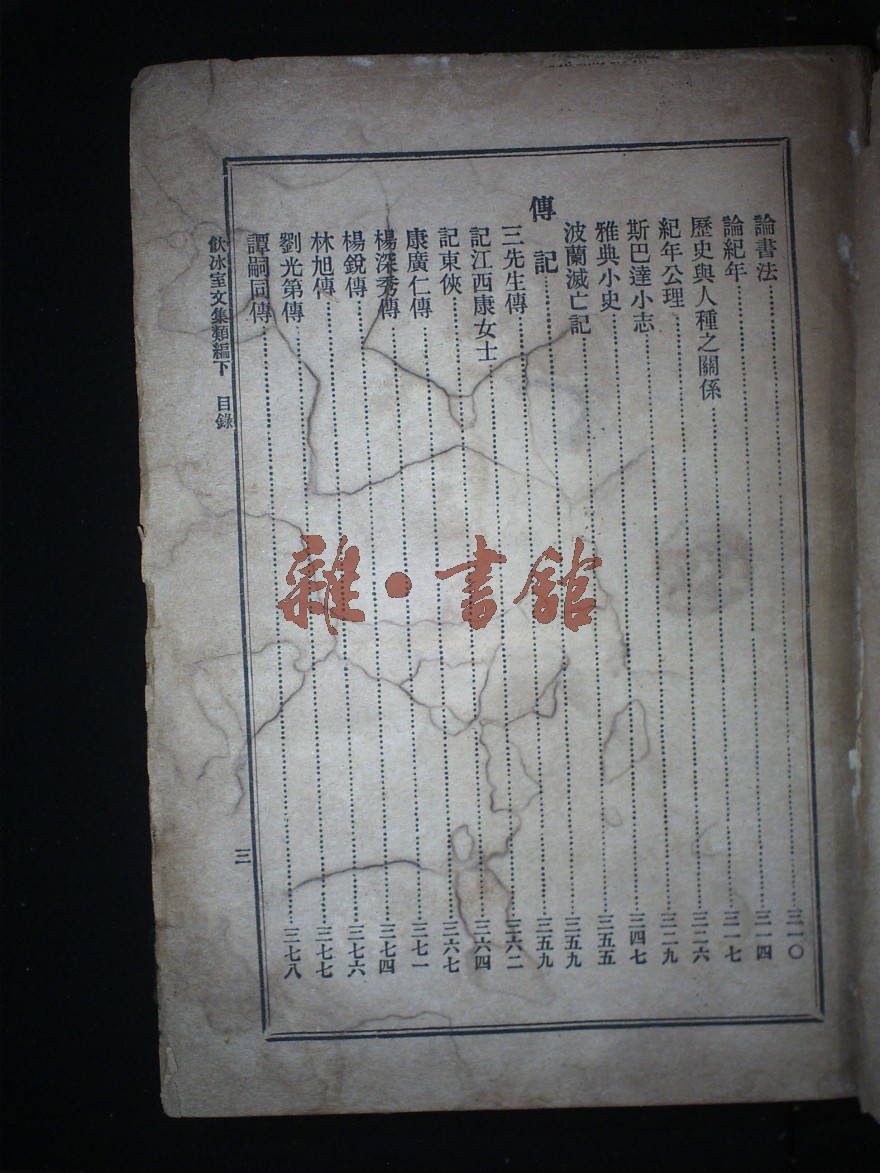 論書法……三一〇
論紀年……三一四
歷史與人種之關係……三一七
紀年公理……三二六
斯巴達小志……三二九
雅典小史……三四七
波蘭滅亡記……三五五
傳記……三五九
三先生傳……三五九
記江西康女士……三六二
記東俠……三六四
康廣仁傳……三六七
楊深秀傳……三七一
楊銳傳……三七四
林旭傳……三七六
劉光第傳……三七七
譚嗣同傳……三七八
飲冰室文集類編下 目錄 三
雜·書館